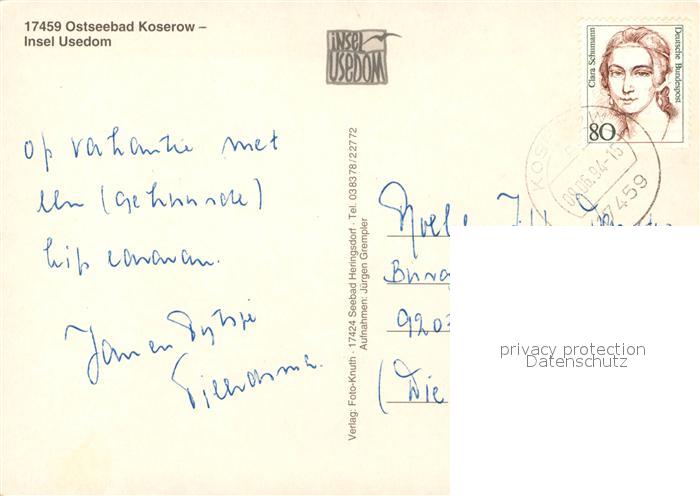 17459 Ostseebad Koserow –
Insel Usedom
INSEL
USEDOM
Clara Schumann
Deutsche Bundespost
80
09.06.94-15
17459
op vakantie met
een (gehuurde)
kip caravan.
Jan en Pytsje
Verlag: Foto-Knuth · 17424 Seebad Heringsdorf · Tel. 038378/22772
Aufnahmen: Jürgen Grempler
920
(Die
privacy protection
Datenschutz